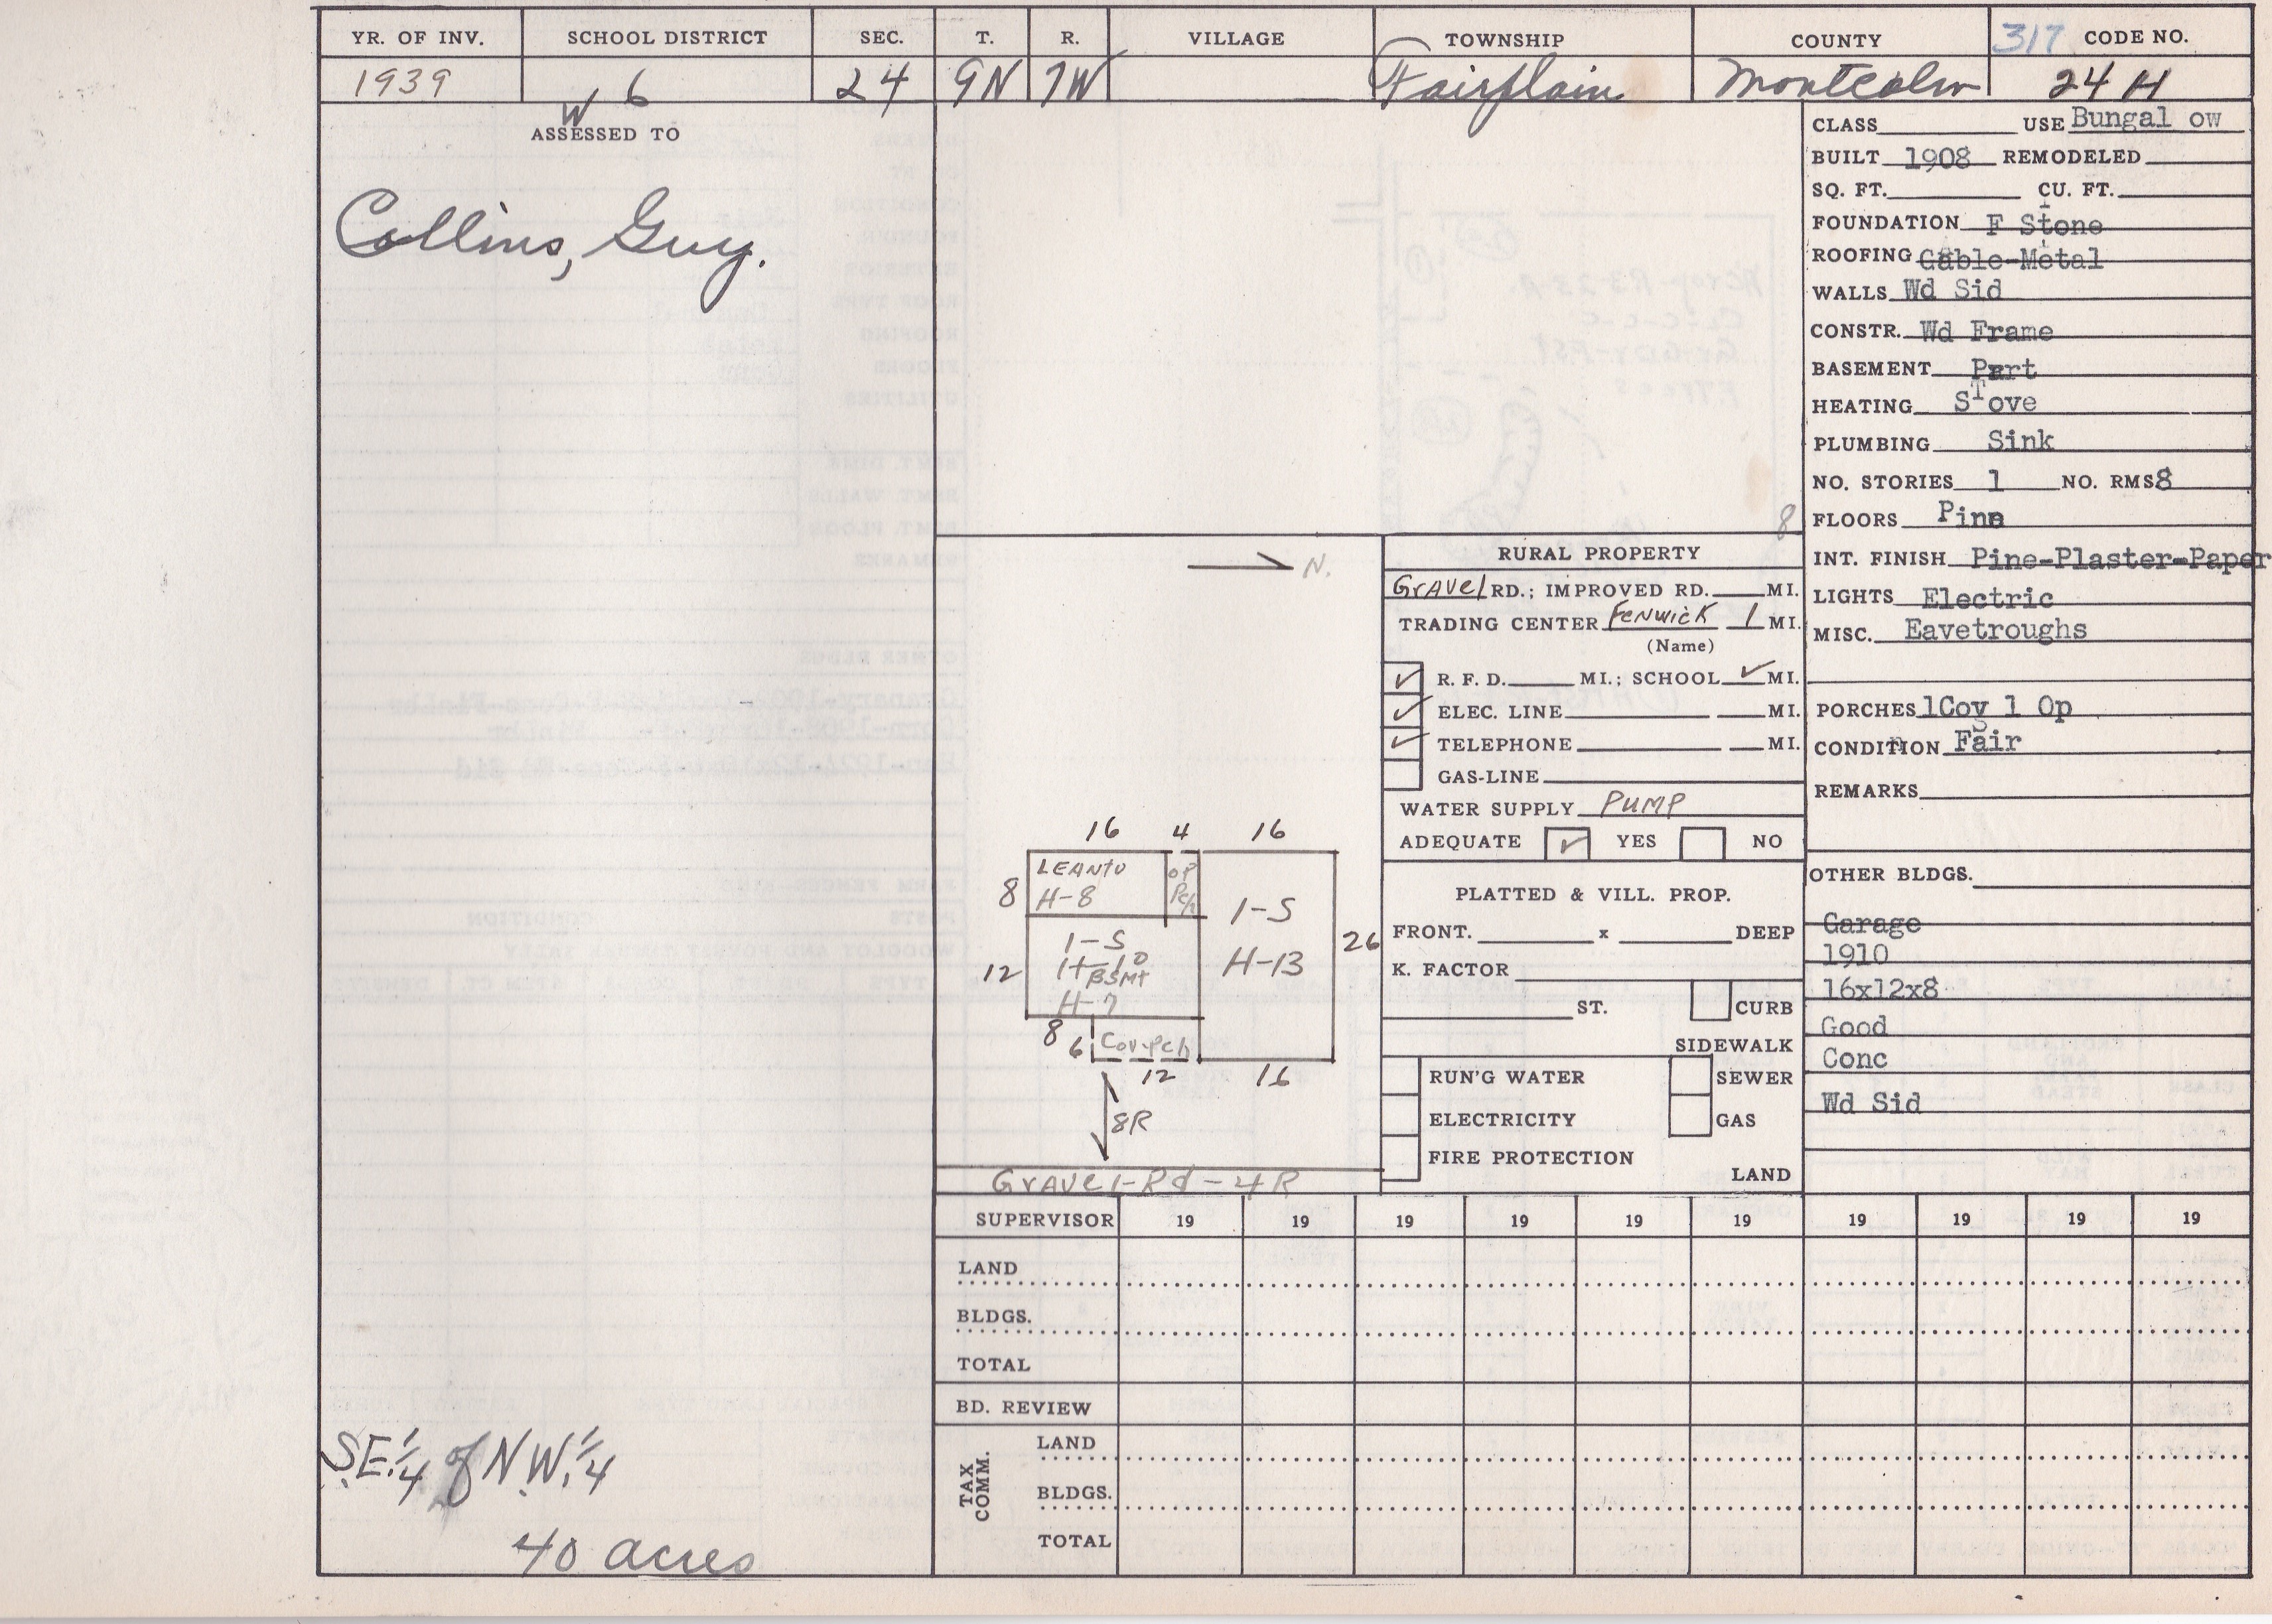 YR. OF INV. SCHOOL DISTRICT SEC. T. R. VILLAGE TOWNSHIP COUNTY 317 CODE NO.
1939 W 6 24 9N 7W Fairplain Montcalm 24 H
ASSESSED TO
Collins, Guy.
SE.1/4 of N.W.1/4
40 acres
N.
16 4 16
8 LEANTO OP
H-8 Pch
1-S
H-13
26
12 1-S
H-10
BSMt
H-7
8 6 Cov-Pch
12 16
8R
Gravel-Rd-4R
8
RURAL PROPERTY
Gravel RD.; IMPROVED RD. MI.
TRADING CENTER Fenwick 1 MI.
(Name)
✓ R. F. D. MI.; SCHOOL ✓ MI.
✓ ELEC. LINE MI.
✓ TELEPHONE MI.
GAS-LINE
WATER SUPPLY PUMP
ADEQUATE ✓ YES NO
PLATTED & VILL. PROP.
FRONT. x DEEP
K. FACTOR
ST. CURB
SIDEWALK
RUN'G WATER SEWER
ELECTRICITY GAS
FIRE PROTECTION
LAND
CLASS USE Bungal ow
BUILT 1908 REMODELED
SQ. FT. CU. FT.
FOUNDATION F Stone
ROOFING Gable-Metal
WALLS Wd Sid
CONSTR. Wd Frame
BASEMENT Part
HEATING STove
PLUMBING Sink
NO. STORIES 1 NO. RMS 8
FLOORS Pine
INT. FINISH Pine-Plaster-Paper
LIGHTS Electric
MISC. Eavetroughs
PORCHES 1Cov 1 Op
CONDITION Fair
REMARKS
OTHER BLDGS.
Garage
1910
16x12x8
Good
Conc
Wd Sid
SUPERVISOR 19 19 19 19 19 19 19 19 19 19
LAND
BLDGS.
TOTAL
BD. REVIEW
TAX COMM.
LAND
BLDGS.
TOTAL